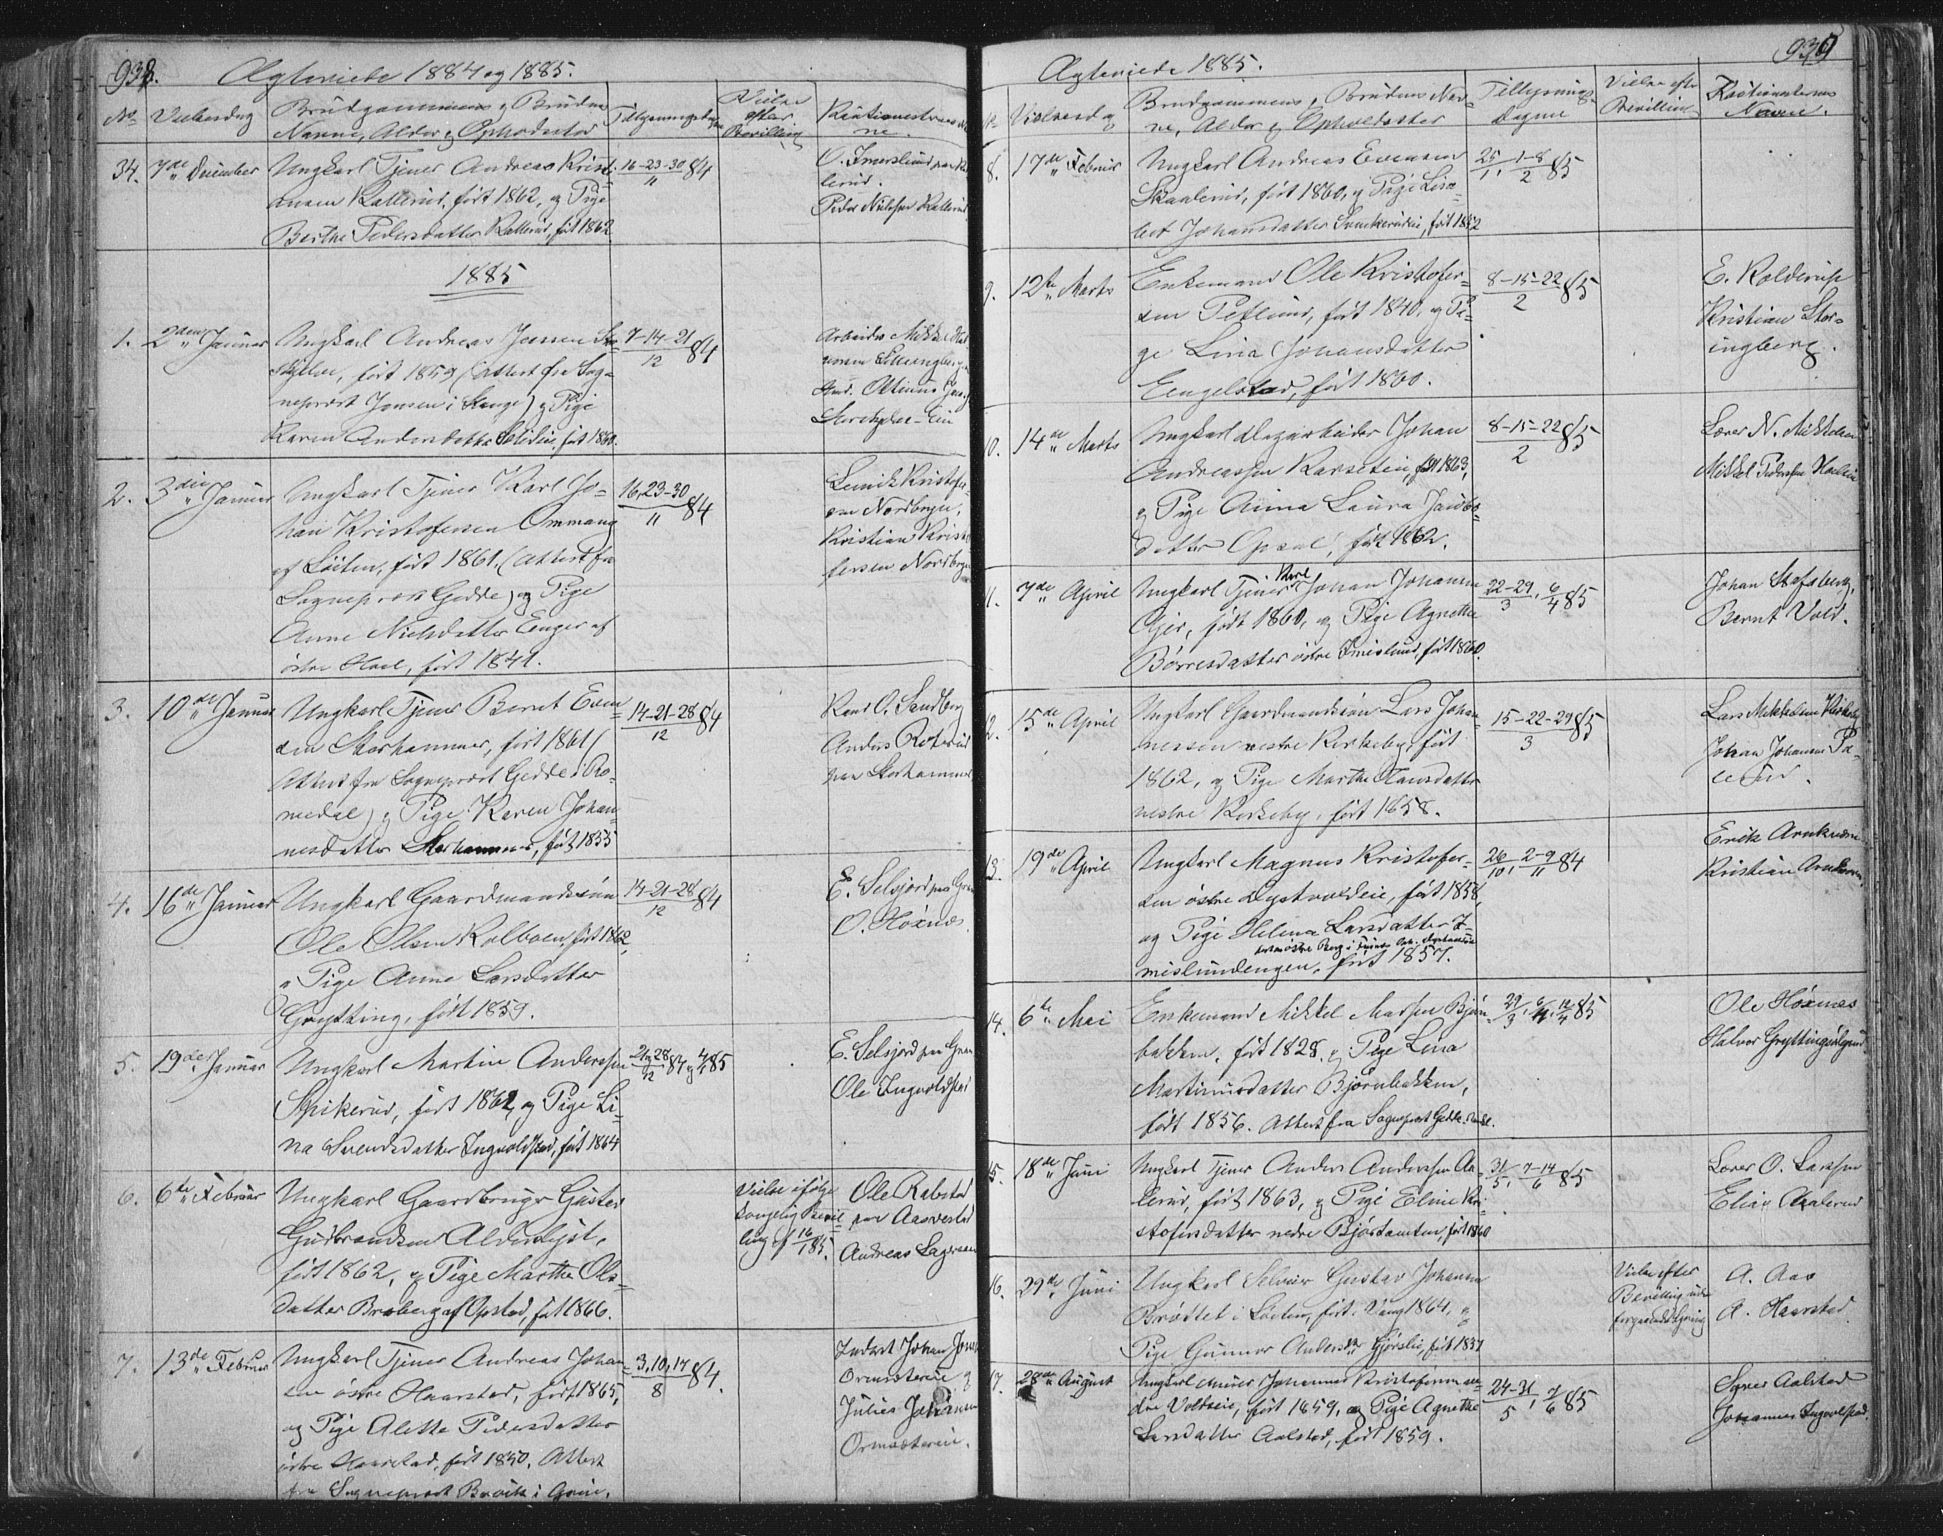 938.
Ægteviede 1884 og 1885.
No
Vielsesdag
Brudgommens og Brudens
Navne, Alder og Opholdssted
Tillysningsdagene
Vielse
efter
Bevilling
Kautionisternes
ne.
34. 7de December
Ungkarl Tjener Andreas Krist-
iansen Kallerud, født 1862, og Pige
Berthe Pedersdatter Kallerud, født 1862
16-23-30/11 84
O. Imerslund
Peder Nilsen Kallerud
1885
1. 2den Januar
Ungkarl Andreas Jensen
født 1859 (Attest fra Sog-
nepræst Jensen i Stange) og Pige
Karen Andersdatter født 1860.
7-14-21/12 84
Arbeider Mikkel
2. 3die Januar
Ungkarl Tjener Karl Jo-
han Kristofersen Ommang
af Løiten, født 1861, (Attest fra
Sognepræst Gedde) og Pige
Anne Nielsdatter Enger af
østre Hoel, født 1841.
16,23-30/11 84
Kristofer-
sen Nordbryn,
Kristian Kristo-
fersen Nordbryn
3. 10de Januar
Ungkarl Tjener Bernt Even-
sen Storhammer, født 1861 (
Attest fra Sognepræst Gedde i Ro-
medal) og Pige Karen Johan-
nesdatter Storhammer, født 1855
14-21-28/12 84
O. Sandberg
Anders
paa Storhammer
4. 16de Januar
Ungkarl Gaardmandssøn
Ole Olsen Kolboen, født 1862,
og Pige Anne Larsdatter
Grytting, født 1859.
14-21-28/12 84
E. Selsjord paa Gran
O. Høxnæs.
5. 19de Januar
Ungkarl Martin Anderssen
Spikerud, født 1862, og Pige Li-
na Svendsdatter Ingvoldstad, født 1864
21,28/12 84 og 4/1 85
E. Selsjord paa Gran
Ole Ingvoldstad
6. 6te Februar
Ungkarl Gaardbruger Gustav
Gudbrandsen Alderslyst,
født 1862, og Pige Marthe Ols-
datter Broberg af Opstad, født 1866.
Vielse ifølge
kongelig Bevil-
ling af 16/1 85.
Ole Rabstad
paa Aasvestad
Andreas Lagesen
7. 13de Februar
Ungkarl Tjener Andreas Johan-
sen østre Haarstad, født 1865,
og Pige Alette Pedersdatter
østre Haarstad, født 1850. Attest
fra Sognepræst i Grue.
3,10,17/8 84.
Inderst Johan
Ormsæterie og
Julius Johansen
Ormsæterie.
939
Ægteviede 1885.
Vielsesdag
Brudgommens og Brudens Nav-
ne, Alder og Opholdssted
Tillysnings-
Dagene
Vielse efter
Bevilling
Kautionisternes
Navne.
8. 17de Februar
Ungkarl Andreas Evensen
Skaalerud, født 1860, og Pige Lisa-
bet Johansdatter født 1852
25/1, 1-8/2 85
9. 12te Marts
Enkemand Ole Kristofer-
sen Petlund, født 1840, og Pi-
ge Lina Johansdatter
Eengelstad, født 1860.
8-15-22/2 85
E. Kolderup
Kristian Stor-
ingberg.
10. 14de Marts
Ungkarl Dagarbeider Johan
Andreassen født 1863,
og Pige Anna Laura Jacobs-
datter Opsal, født 1862.
8-15-22/2 85
Lærer N. Mikkelsen
Mikkel Pedersen
11. 7de April
Karl
Ungkarl Tjener Johan Johansen
Gjer, født 1860, og Pige Agnethe
Børresdatter østre Imislund, født 1860.
22-29/3, 6/4 85
Johan Stafsberg,
Bernt Vold.
12. 15de April
Ungkarl Gaardmandssøn Lars Johan-
nessen vestre Kirkeby, født
1862, og Pige Marthe Hansdatter
vestre Kirkeby, født 1858.
15-22-29/3 85
Lars Mikkelsen Kirkeby
Johan Johansen
13. 19de April
Ungkarl Magnus Kristofer-
sen østre Dystvoldeie, født 1858,
og Pige Helena Larsdatter I-
mislundengen, født 1857.
26/10, 2-9/11 84
Erik Arnkværn
Kristian Arnkværn
14. 6te Mai
Enkemand Mikkel Madsen Bjørn-
bakken, født 1828, og Pige Lina
Martinusdatter Bjørnbakken,
født 1856. Attest fra Sognepræst Gedde.
29/3, 6/4, 12/4 85
Ole Høxnæs
Halvor Gryttingsødegaard
15. 18de Juni
Ungkarl Tjener Anders Anderssen Aa-
lerud, født 1863, og Pige Eline Kri-
stofersdatter nedre født 1860
31/5, 7-14/6 85
Lærer O. Larsen
Elias Aalerud
16. 29de Juni
Ungkarl Selveier Gustav Johansen
Brødtet i Løiten, født i Vang 1864, og
Pige Gunnor Andersdr. Gjørslie, født 1857
Vielse efter
Bevilling uden
forgaaende Lysning
A. Aas
A. Haarstad.
17. 28de August
Ungkarl Murer Johannes Kristofersen ne-
dre Voldseie, født 1859, og Pige Agnethe
Larsdatter Aalstad, født 1859.
24-31/5, 7/6 85
Syver Aalstad
Johannes Ingvoldstad.